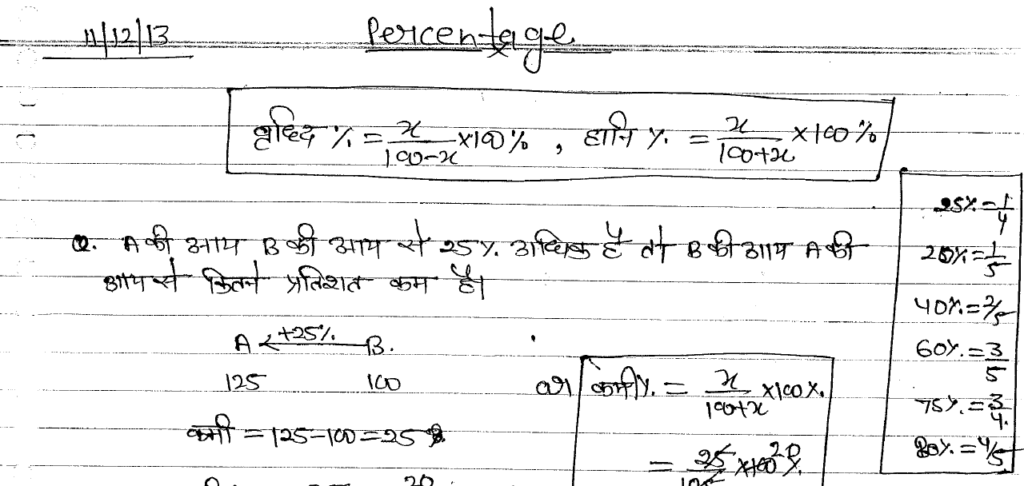 11/12/13
Percentage
वृद्धि % = x/100-x ×100% , हानि % = x/100+x ×100%
Q. A की आय B की आय से 25% अधिक है तो B की आय A की
आय से कितने प्रतिशत कम है।
A ←+25% B.
125 100
कमी = 125-100=25
or कमी% = x/100+x ×100%
= 25/125 ×100 20 %
20
25% = 1/4
20% = 1/5
40% = 2/5
60% = 3/5
75% = 3/4.
80% = 4/5